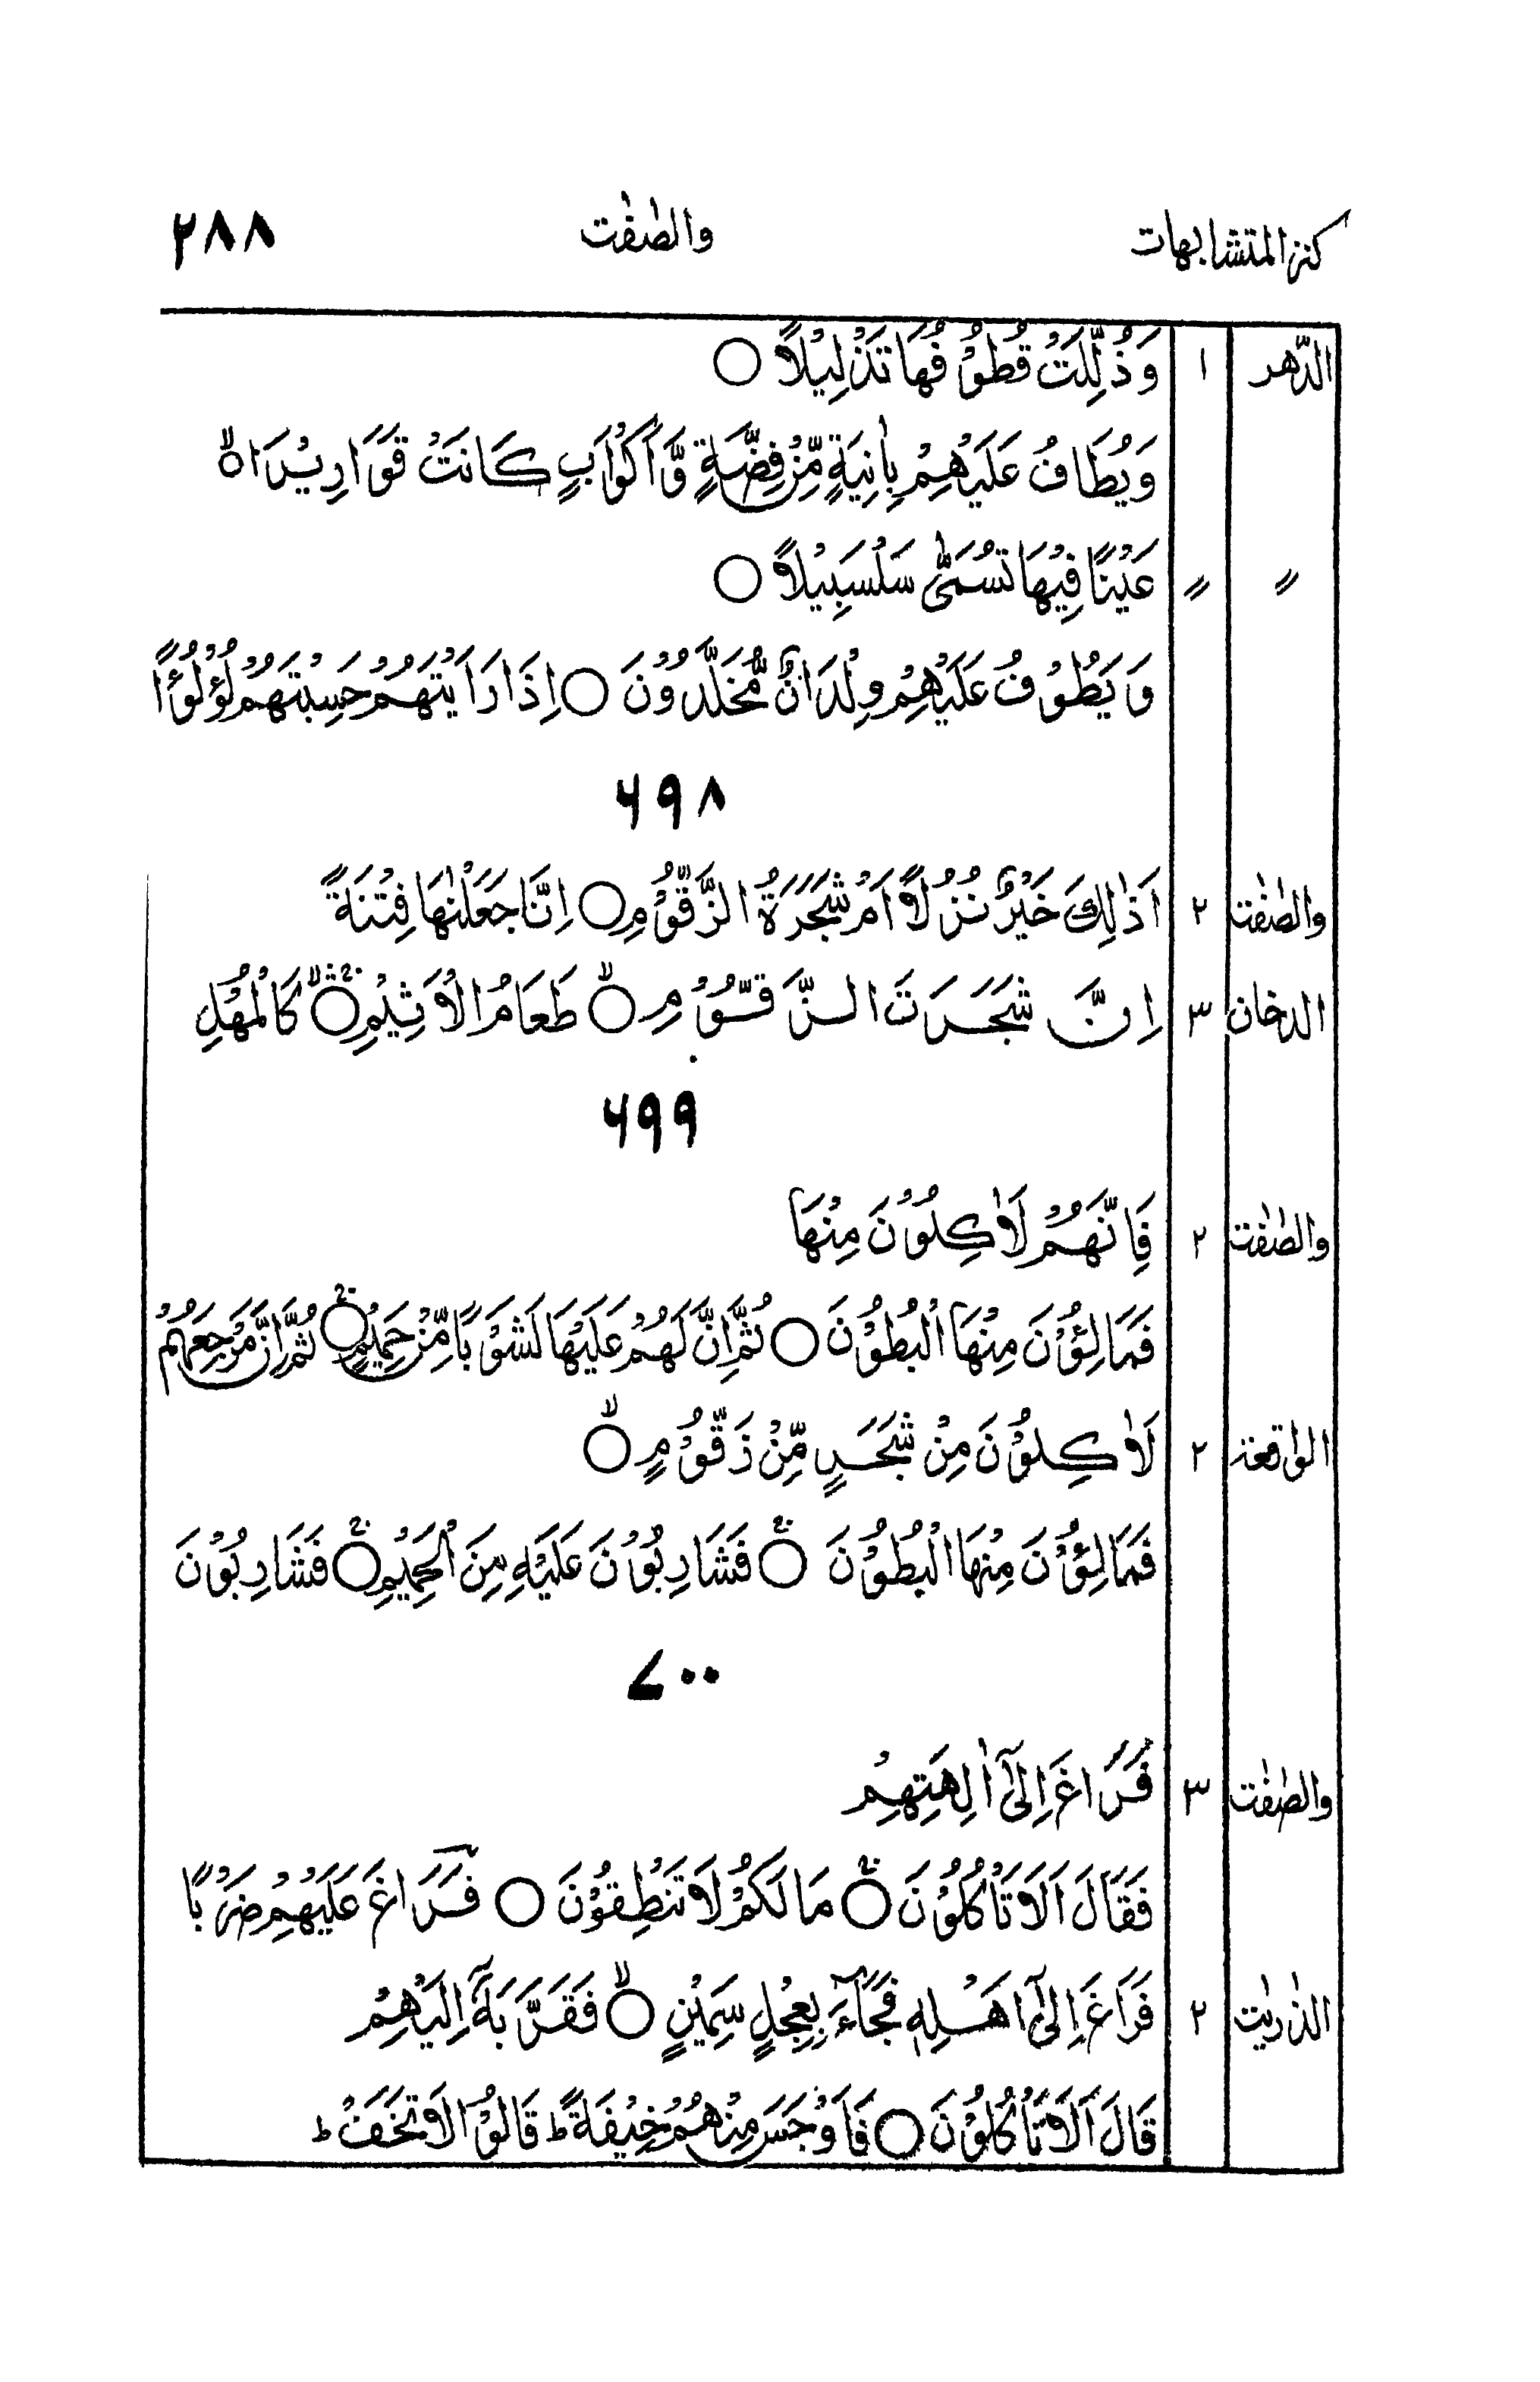 كنز المتشابهات والصّٰفّٰت ٢٨٨
الدّهر ١ وَذُلِّلَتْ قُطُوْفُهَا تَذْلِيْلًا ○
وَيُطَافُ عَلَيْهِمْ بِاٰنِيَةٍ مِّنْ فِضَّةٍ وَّاَكْوَابٍ كَانَتْ قَوَارِيْرَا۠ ۙ
〃 〃 عَيْنًا فِيْهَا تُسَمّٰى سَلْسَبِيْلًا ○
وَيَطُوْفُ عَلَيْهِمْ وِلْدَانٌ مُّخَلَّدُوْنَ ○ اِذَا رَاَيْتَهُمْ حَسِبْتَهُمْ لُؤْلُؤًا
۶۹۸
والصّٰفّٰت ٢ اَذٰلِكَ خَيْرٌ نُّزُلًا اَمْ شَجَرَةُ الزَّقُّوْمِ ○ اِنَّا جَعَلْنٰهَا فِتْنَةً
الدخان ٣ اِنَّ شَجَرَتَ الزَّقُّوْمِ ○ۙ طَعَامُ الْاَثِيْمِ ○ كَالْمُهْلِ
۶۹۹
والصّٰفّٰت ٢ فَاِنَّهُمْ لَاٰكِلُوْنَ مِنْهَا
فَمَالِـُٔوْنَ مِنْهَا الْبُطُوْنَ ○ ثُمَّ اِنَّ لَهُمْ عَلَيْهَا لَشَوْبًا مِّنْ حَمِيْمٍ ○ ثُمَّ اِنَّ مَرْجِعَهُمْ
الواقعة ٢ لَاٰكِلُوْنَ مِنْ شَجَرٍ مِّنْ زَقُّوْمٍ ○ۙ
فَمَالِـُٔوْنَ مِنْهَا الْبُطُوْنَ ○ فَشَارِبُوْنَ عَلَيْهِ مِنَ الْحَمِيْمِ ○ فَشَارِبُوْنَ
۷۰۰
والصّٰفّٰت ٣ فَرَاغَ اِلٰٓى اٰلِهَتِهِمْ
فَقَالَ اَلَا تَاْكُلُوْنَ ○ مَا لَكُمْ لَا تَنْطِقُوْنَ ○ فَرَاغَ عَلَيْهِمْ ضَرْبًا
الذٰريٰت ٢ فَرَاغَ اِلٰٓى اَهْلِهٖ فَجَآءَ بِعِجْلٍ سَمِيْنٍ ○ۙ فَقَرَّبَهٗٓ اِلَيْهِمْ
قَالَ اَلَا تَاْكُلُوْنَ ○ فَاَوْجَسَ مِنْهُمْ خِيْفَةً ؕ قَالُوْا لَا تَخَفْ ؕ